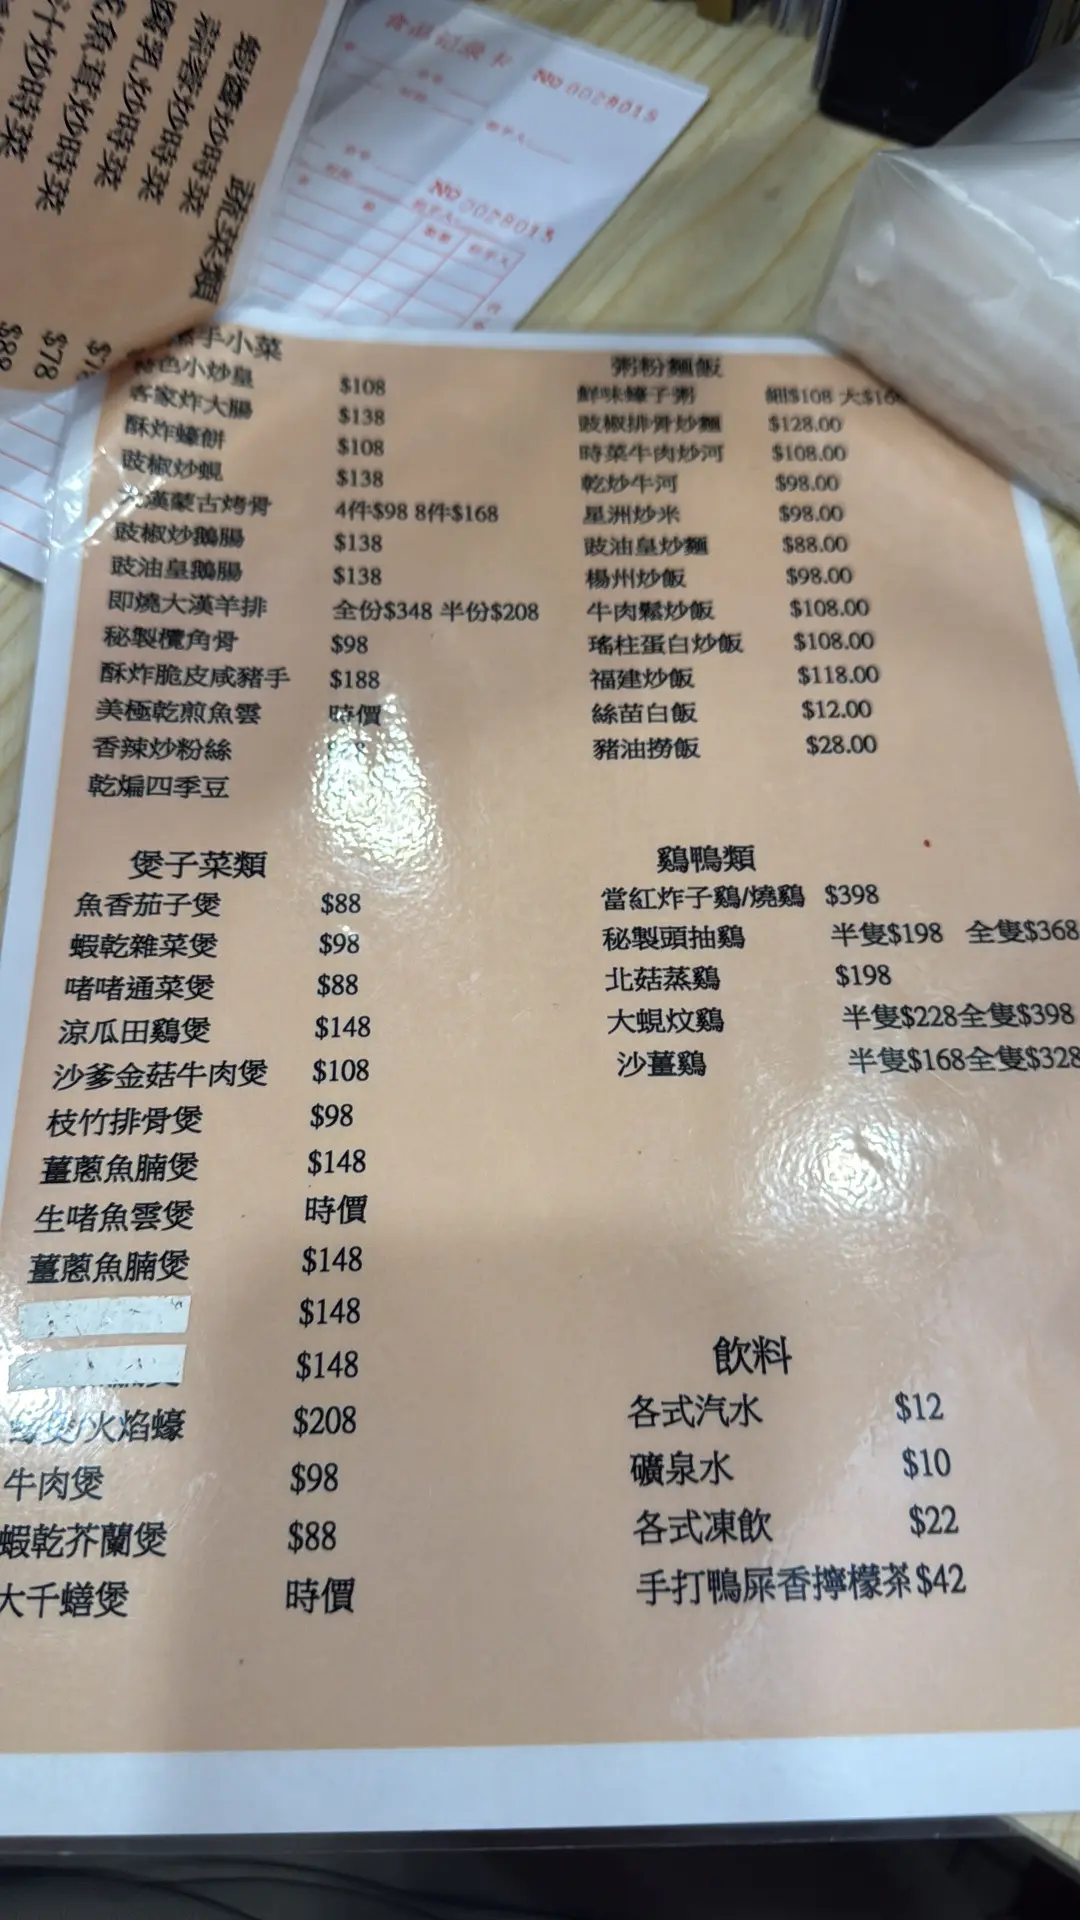 蝦醬炒時菜
蒜蓉炒時菜
腐乳炒時菜
魚茸炒時菜
汁炒時菜
蔬菜類
$78
$88
食品记录卡 NO 0028015
NO 0028015
手小菜
特色小炒皇 $108
客家炸大腸 $138
酥炸蠔餅 $108
豉椒炒蜆 $138
漢蒙古烤骨 4件$98 8件$168
豉椒炒鵝腸 $138
豉油皇鵝腸 $138
即燒大漢羊排 全份$348 半份$208
秘製欖角骨 $98
酥炸脆皮咸豬手 $188
美極乾煎魚雲 時價
香辣炒粉絲
乾煸四季豆
粥粉麵飯
鮮味蠔子粥 細$108 大$16
豉椒排骨炒麵 $128.00
時菜牛肉炒河 $108.00
乾炒牛河 $98.00
星洲炒米 $98.00
豉油皇炒麵 $88.00
楊州炒飯 $98.00
牛肉鬆炒飯 $108.00
瑤柱蛋白炒飯 $108.00
福建炒飯 $118.00
絲苗白飯 $12.00
豬油撈飯 $28.00
煲子菜類
魚香茄子煲 $88
蝦乾雜菜煲 $98
啫啫通菜煲 $88
涼瓜田鷄煲 $148
沙爹金菇牛肉煲 $108
枝竹排骨煲 $98
薑蔥魚腩煲 $148
生啫魚雲煲 時價
薑蔥魚腩煲 $148
$148
$148
煲/火焰蠔 $208
牛肉煲 $98
蝦乾芥蘭煲 $88
大千蟮煲 時價
鷄鴨類
當紅炸子鷄/燒鷄 $398
秘製頭抽鷄 半隻$198 全隻$368
北菇蒸鷄 $198
大蜆炆鷄 半隻$228全隻$398
沙薑鷄 半隻$168全隻$328
飲料
各式汽水 $12
礦泉水 $10
各式凍飲 $22
手打鴨屎香擰檬茶$42